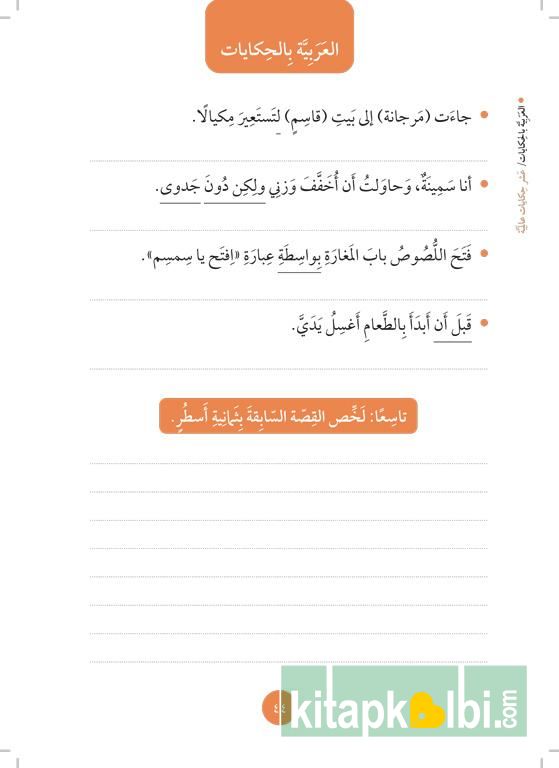 العَرَبِيَّة بِالحِكايات
العَرَبِيَّة بِالحِكايات/ عَشر حِكايات عالَمِيَّة
• جاءَت (مَرجانة) إلى بَيتِ (قاسِمٍ) لِتَستَعِيرَ مِكيالًا.
• أنا سَمِينَةٌ، وَحاوَلتُ أَن أُخَفَّفَ وَزنِي ولِكِن دُونَ جَدوى.
• فَتَحَ اللُّصُوصُ بابَ المَغارَةِ بِواسِطَةِ عِبارَةِ «اِفتَح يا سِمسِم».
• قَبلَ أَن أَبدَأَ بِالطَّعامِ أَغسِلُ يَدَيَّ.
تاسِعًا: لَخِّص القِصّة السّابِقةَ بِثَمانِيةِ أَسطُرٍ.
kitapkalbi.com